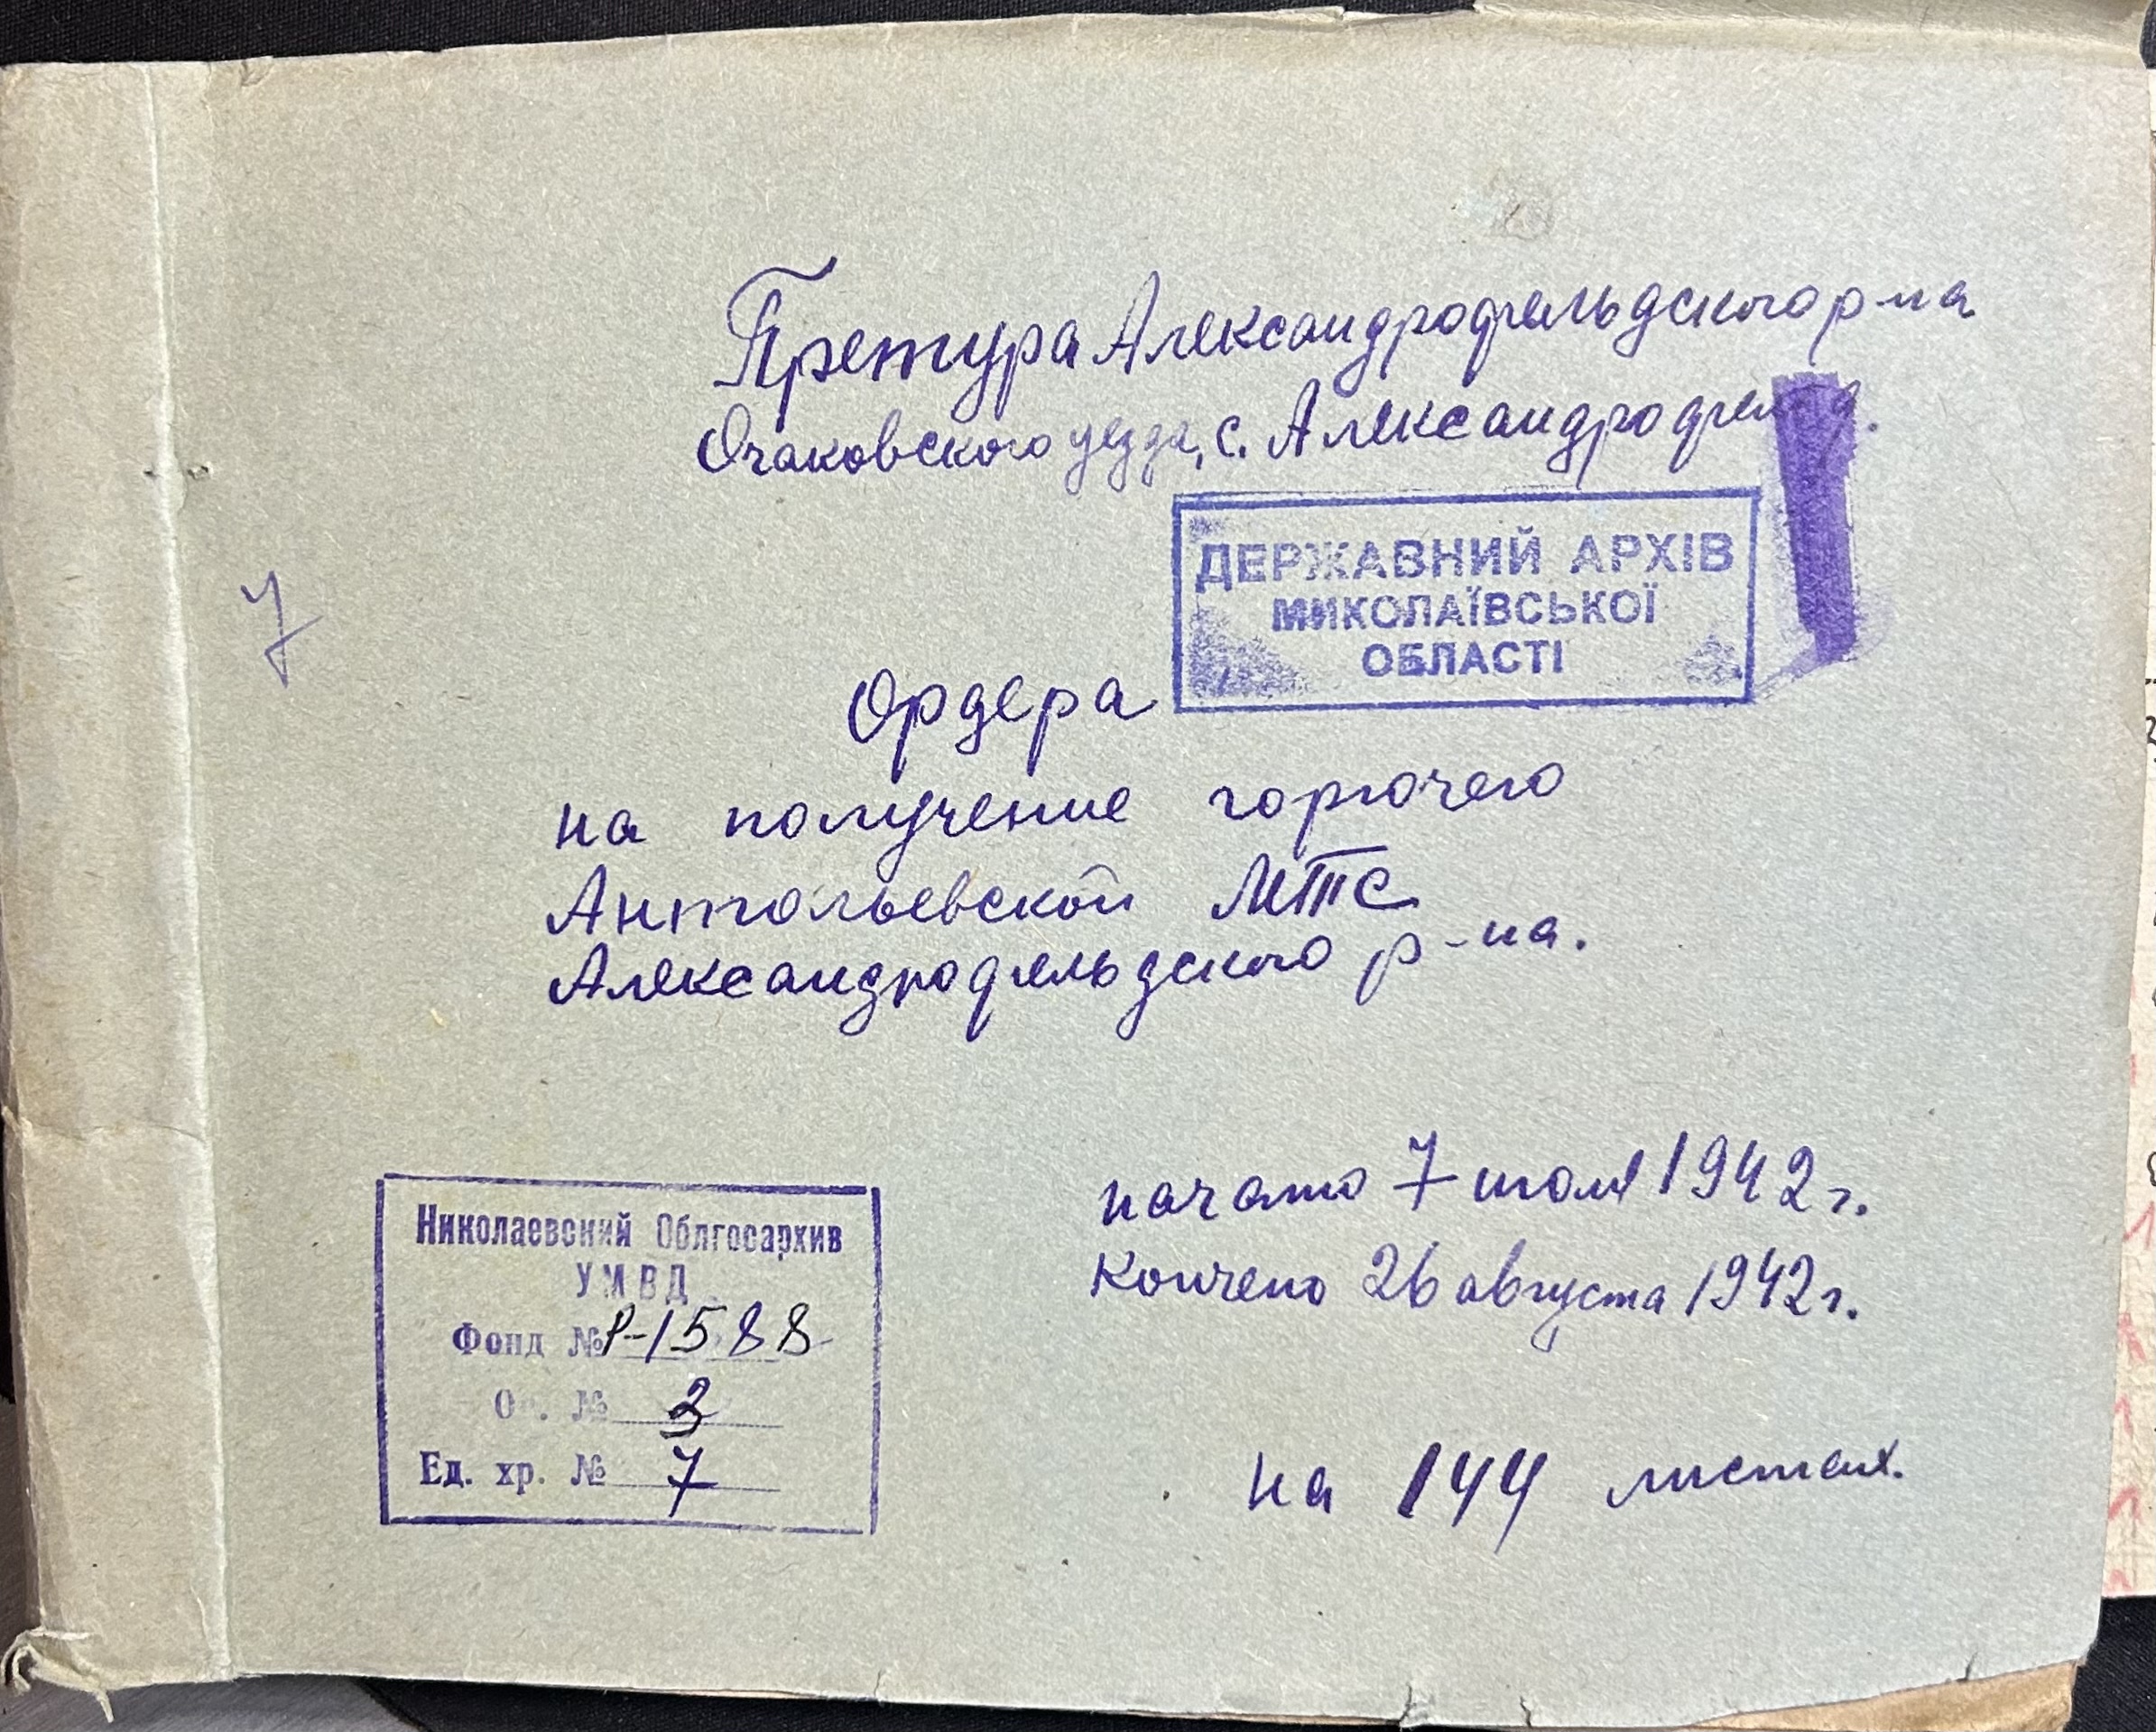 Претура Александрофельдского р-на
Очаковского уезда, с. Александрофельд.
ДЕРЖАВНИЙ АРХІВ
МИКОЛАЇВСЬКОЇ
ОБЛАСТІ
7
Ордера
на получение горючего
Антольевской МТС
Александрофельдского р-на.
начато 7 июля 1942 г.
Кончено 26 августа 1942 г.
Николаевский Облгосархив
УМВД
Фонд № Р-1588
Оп. №
Ед. хр. № 7
на 144 листах.